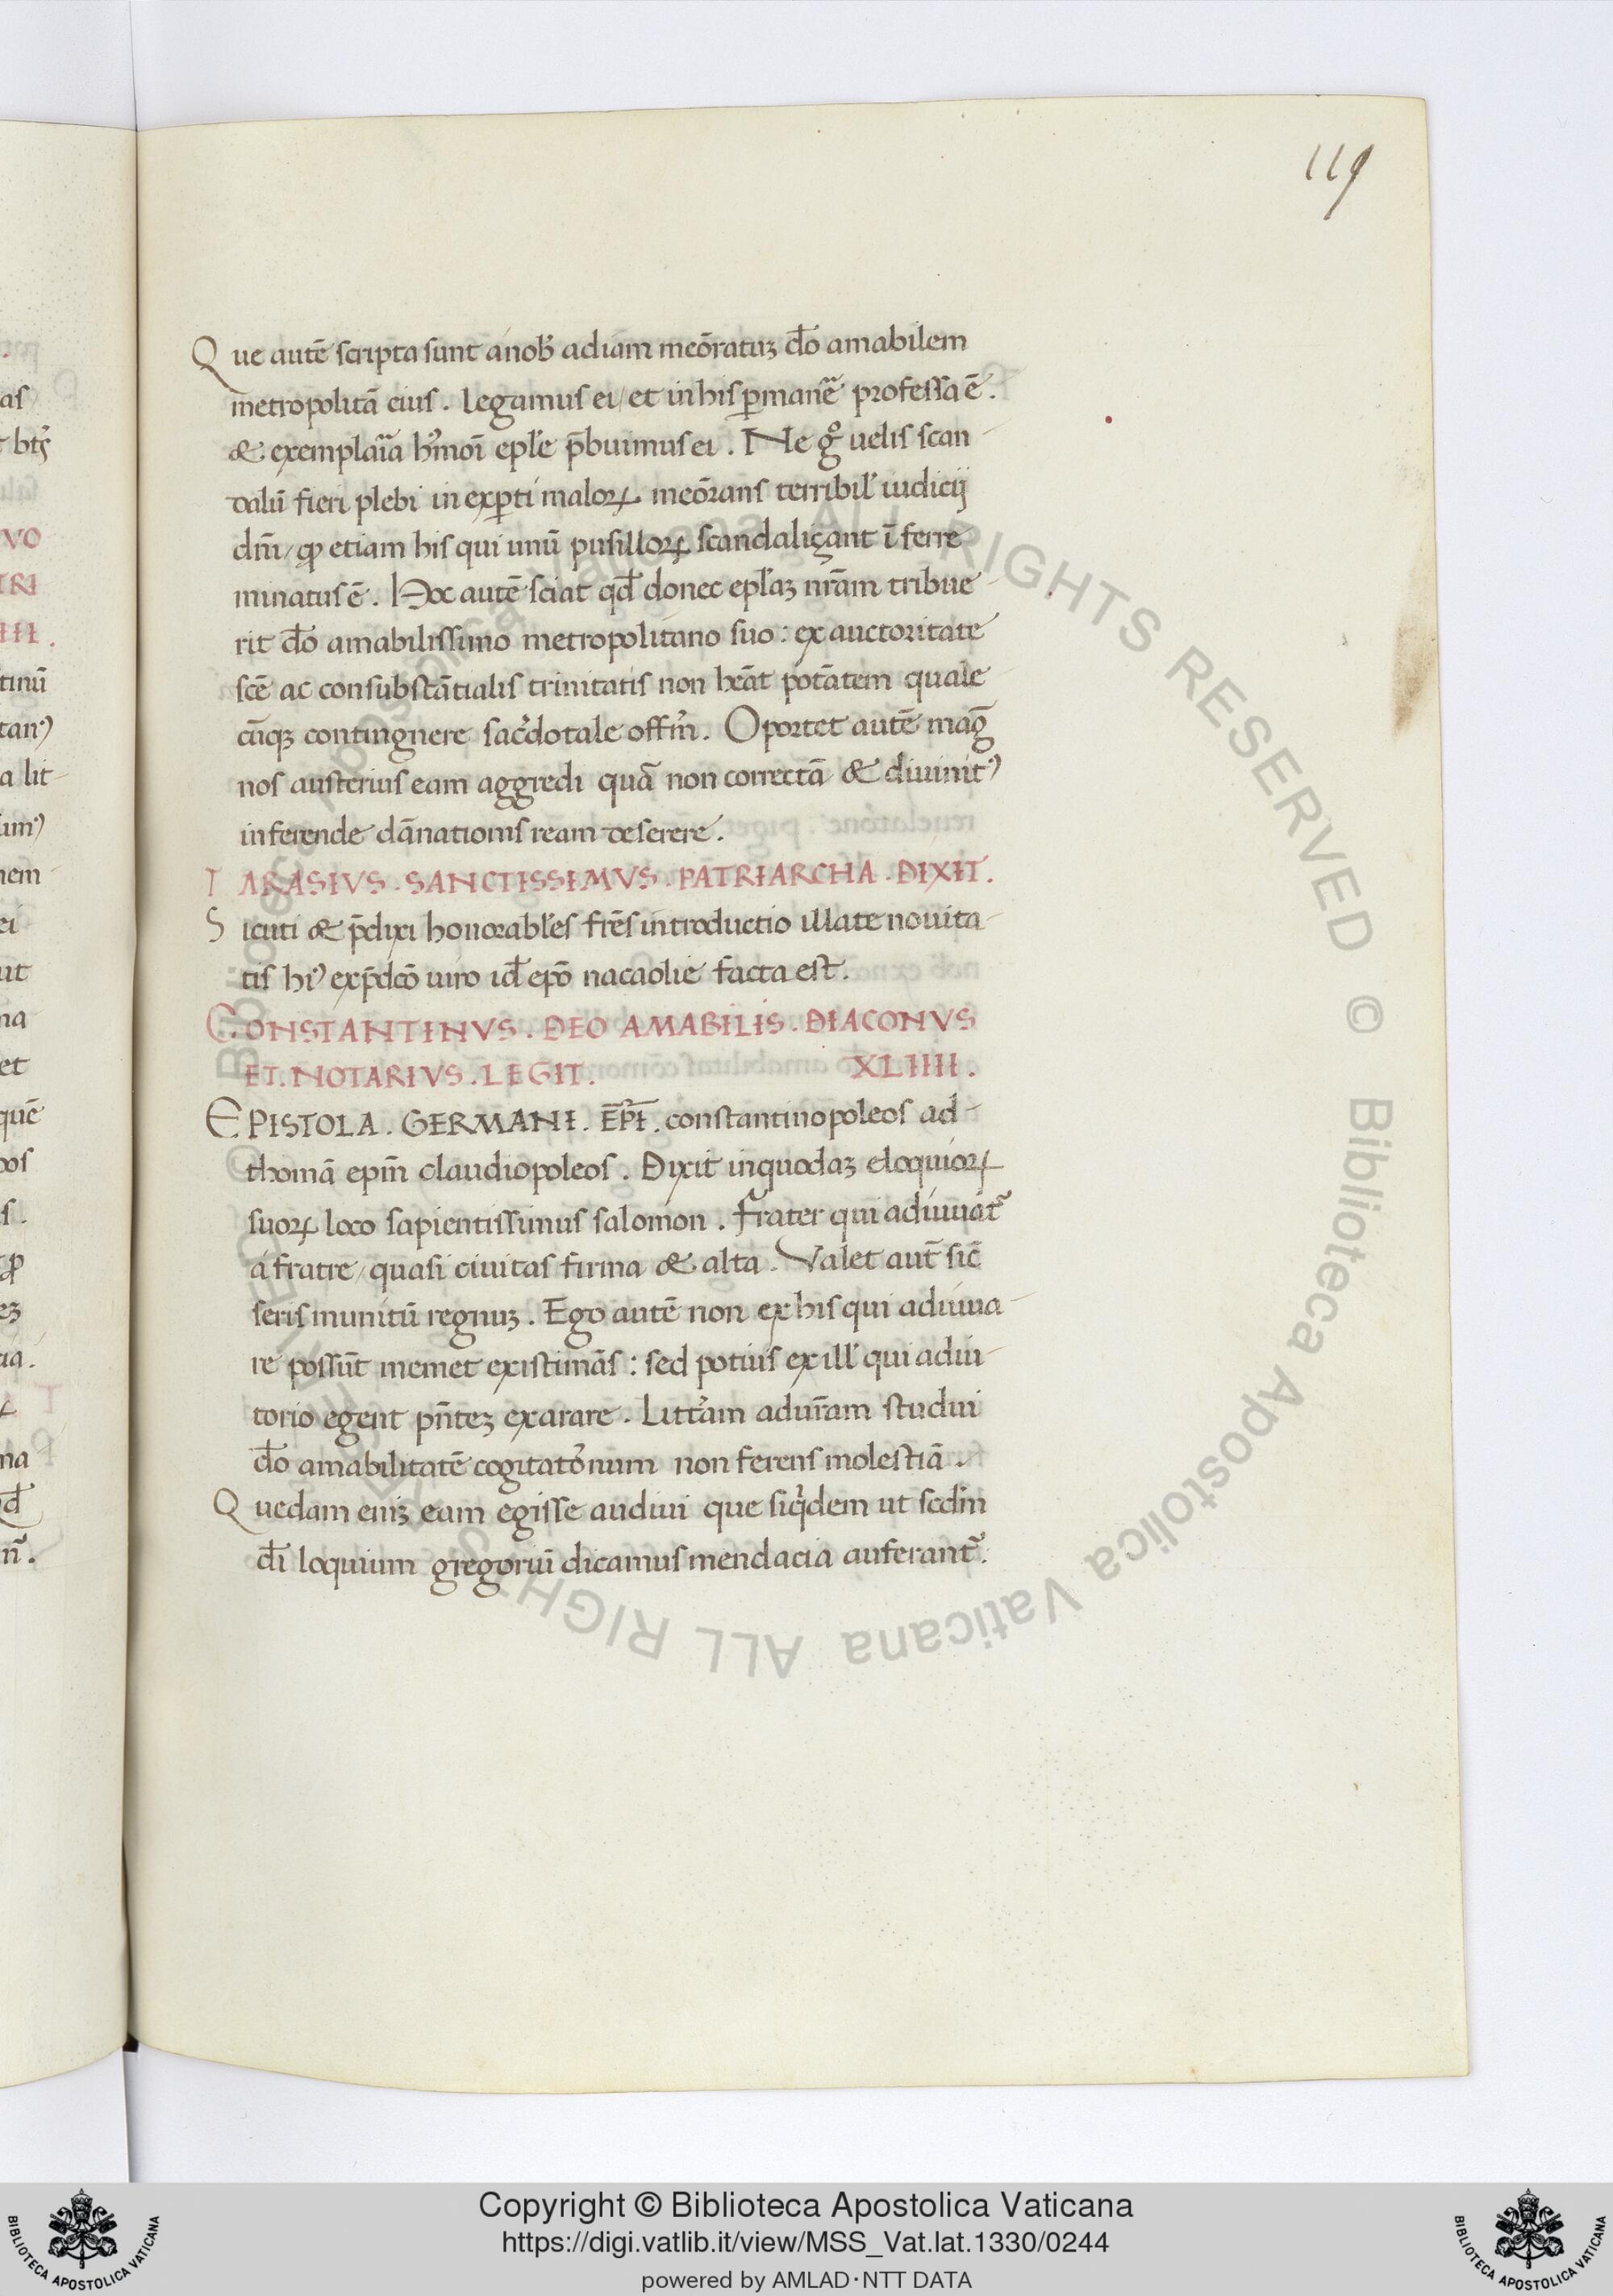 119
Que autē scripta sunt a nob̾ adiam meōratuȝ d̄o amabilem
metropolitā eius . legamus ei / et in his ꝑmanē professa ē .
& exemplaria h̾moi ep̄le p̄buimus ei . Ne gͦ uelis scan-
dalū fieri plebi inexꝑti maloꝝ meōrans terribil̾ iudicij
dn̄i / ꝙ etiam his qui unū pusilloꝝ scandaliçant ī ferre
minatus ē . Hoc autē sciat qd̄ donec ep̄laȝ nr̄am tribue-
rit d̄o amabilissimo metropolitano suo : ex auctoritate
scē ac consubstātialis trinitatis non heāt potātem quale-
cūqȝ contingnere sac̾dotale offm̄ . Oportet autē maḡ
nos austerius eam aggredi quā non correctā & diuinit᾽
inferende dānationis ream deserere .
TARASIVS . SANCTISSIMVS . PATRIARCHA . DIXIT .
Sicuti & p̄dixi honorabl̾es frēs introductio illate nouita-
tis hi᾽ exp̄dcō uiro id̄ epō nacaolie facta est .
CONSTANTINVS . DEO AMABILIS . DIACONVS
ET . NOTARIVS . LEGIT . XLIIII .
EPISTOLA . GERMANI . EP̄I . constantinopoleos ad-
thomā epm̄ claudiopoleos . Dixit inquodaȝ eloquioꝝ
suoꝝ loco sapientissimus salomon . Frater qui adiuuat᷑
a fratre / quasi ciuitas firma & alta . Valet aut̄ sic̄
seris munitū regnuȝ . Ego autē non ex his qui adiuua-
re possūt memet existimās : sed potius ex ill̾ qui adiu-
torio egent pn̄teȝ exarare . Litt̾am adur̄am studui
d̄o amabilitatē cogitatōnum non ferens molestiā .
Quedam eniȝ eam egisse audiui que siq̾dem ut scdm̄
d̄i loquium gregoriū dicamus mendacia auferant᷑ .
Copyright © Biblioteca Apostolica Vaticana
https://digi.vatlib.it/view/MSS_Vat.lat.1330/0244
powered by AMLAD·NTT DATA
BIBLIOTECA APOSTOLICA VATICANA
BIBLIOTECA APOSTOLICA VATICANA
© Biblioteca Apostolica Vaticana ALL RIGHTS RESERVED © Biblioteca Apostolica Vaticana ALL RIGHTS RESERVED